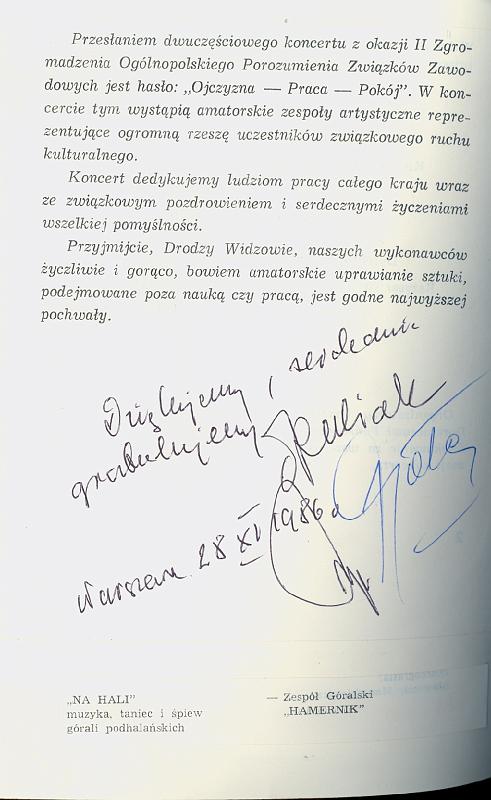 Przesłaniem dwuczęściowego koncertu z okazji II Zgro-
madzenia Ogólnopolskiego Porozumienia Związków Zawo-
dowych jest hasło: „Ojczyzna — Praca — Pokój”. W kon-
cercie tym wystąpią amatorskie zespoły artystyczne repre-
zentujące ogromną rzeszę uczestników związkowego ruchu
kulturalnego.
Koncert dedykujemy ludziom pracy całego kraju wraz
ze związkowym pozdrowieniem i serdecznymi życzeniami
wszelkiej pomyślności.
Przyjmijcie, Drodzy Widzowie, naszych wykonawców
życzliwie i gorąco, bowiem amatorskie uprawianie sztuki,
podejmowane poza nauką czy pracą, jest godne najwyższej
pochwały.
Dziękujemy, serdecznie
gratulujemy
Warszawa 28 XI 1986
„NA HALI”
muzyka, taniec i śpiew
górali podhalańskich
— Zespół Góralski
„HAMERNIK”